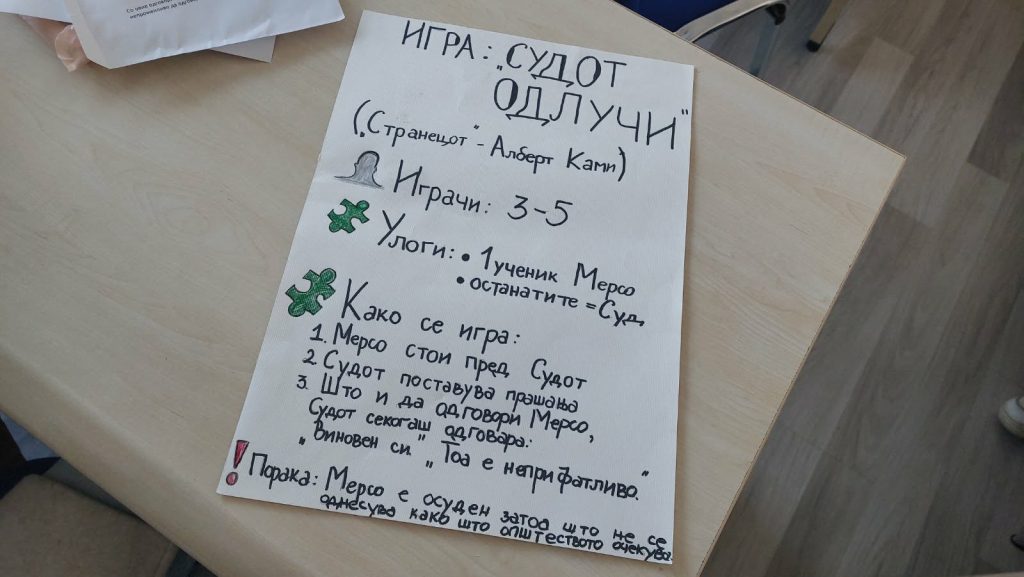 ИГРА: „СУДОТ
ОДЛУЧИ“
(„Странецот“ - Алберт Ками)
Играчи: 3-5
Улоги: • 1 ученик Мерсо
• останатите = Суд
Како се игра:
1. Мерсо стои пред Судот
2. Судот поставува прашања
3. Што и да одговори Мерсо,
Судот секогаш одговара:
„Виновен си.“ „Тоа е неприфатливо.“
! Порака: Мерсо е осуден затоа што не се
однесува како што општеството очекува